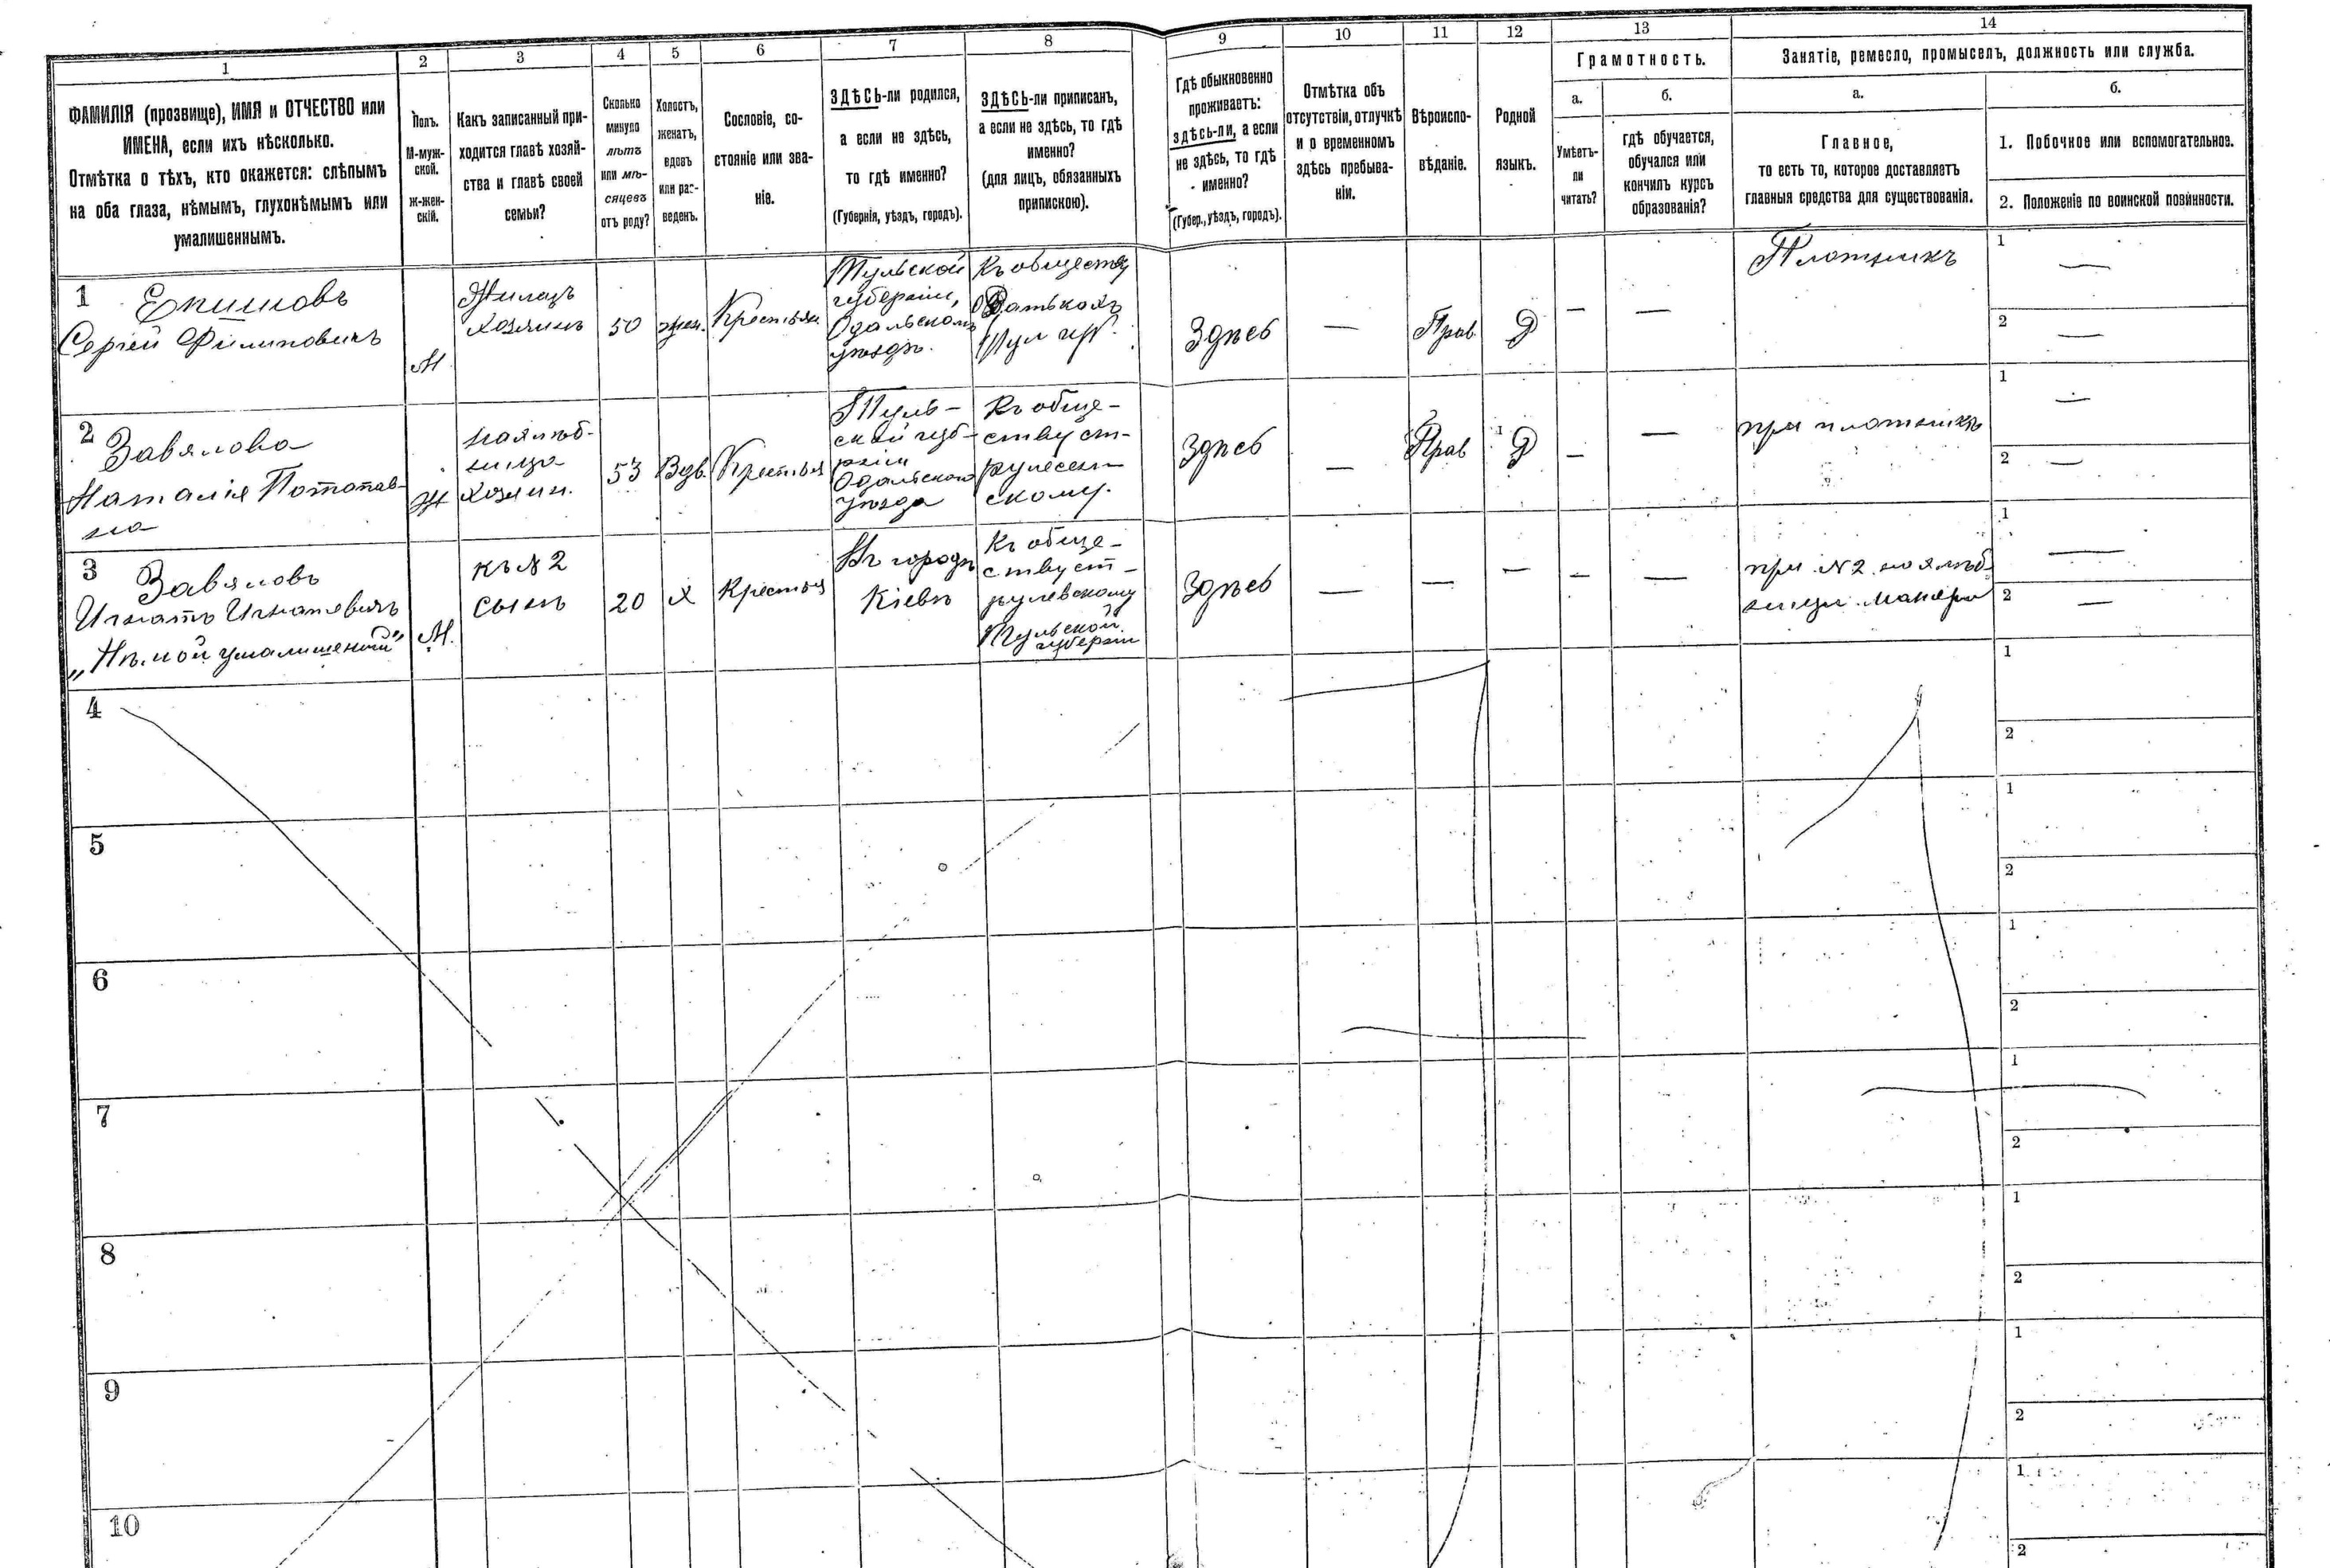 1
2
3
4
5
6
7
8
9
10
11
12
13
14
ФАМИЛІЯ (прозвище), ИМЯ и ОТЧЕСТВО или
ИМЕНА, если ихъ нѣсколько.
Отмѣтка о тѣхъ, кто окажется: слѣпымъ
на оба глаза, нѣмымъ, глухонѣмымъ или
умалишеннымъ.
Полъ.
М-муж-
ской.
Ж-жен-
скій.
Какъ записанный при-
ходится главѣ хозяй-
ства и главѣ своей
семьи?
Сколько
минуло
лѣтъ
или мѣ-
сяцевъ
отъ роду?
Холостъ,
женатъ,
вдовъ
или раз-
веденъ.
Сословіе, со-
стояніе или зва-
ніе.
ЗДѢСЬ-ли родился,
а если не здѣсь,
то гдѣ именно?
(Губернія, уѣздъ, городъ).
ЗДѢСЬ-ли приписанъ,
а если не здѣсь, то гдѣ
именно?
(для лицъ, обязанныхъ
припискою).
Гдѣ обыкновенно
проживаетъ:
здѣсь-ли, а если
не здѣсь, то гдѣ
именно?
(Губер., уѣздъ, городъ).
Отмѣтка объ
отсутствіи, отлучкѣ
и о временномъ
здѣсь пребыва-
ніи.
Вѣроиспо-
вѣданіе.
Родной
языкъ.
Грамотность.
а.
Умѣетъ-
ли
читать?
б.
гдѣ обучается,
обучался или
кончилъ курсъ
образованія?
Занятіе, ремесло, промыселъ, должность или служба.
а.
Главное,
то есть то, которое доставляетъ
главныя средства для существованія.
б.
1. Побочное или вспомогательное.
2. Положеніе по воинской повинности.
1
Епишовъ
Сергій Филиповичъ
М
Жилецъ
Хозяинъ
50
жен.
Крестьян
Тульской
губерніи,
уѣздъ.
Къ обществу
Тул
Здѣсь
—
Прав
Р
—
—
Плотникъ
1
—
2
—
2
Завялова
Наталія Потапов-
на
Ж
наимоб-
ница
хозяин.
53
Вдв.
Крестьян
Туль-
ской губ-
рніи
уѣзда
Къ обще-
ству ст-
скому.
Здѣсь
—
Прав
Р
—
—
при плотникѣ
1
—
2
—
3
Завяловъ
Игнатъ Игнатевичъ
„Нѣмой умалишеный"
М.
къ №2
сынъ
20
Х
Крестьян
Въ городѣ
Кіевѣ
Къ обще-
ству ст-
рулевскому
Тульской
губерніи
Здѣсь
—
—
—
—
—
при №2
матери
1
—
2
—
4
1
2
5
1
2
6
1
2
7
1
2
8
1
2
9
1
2
10
1
2